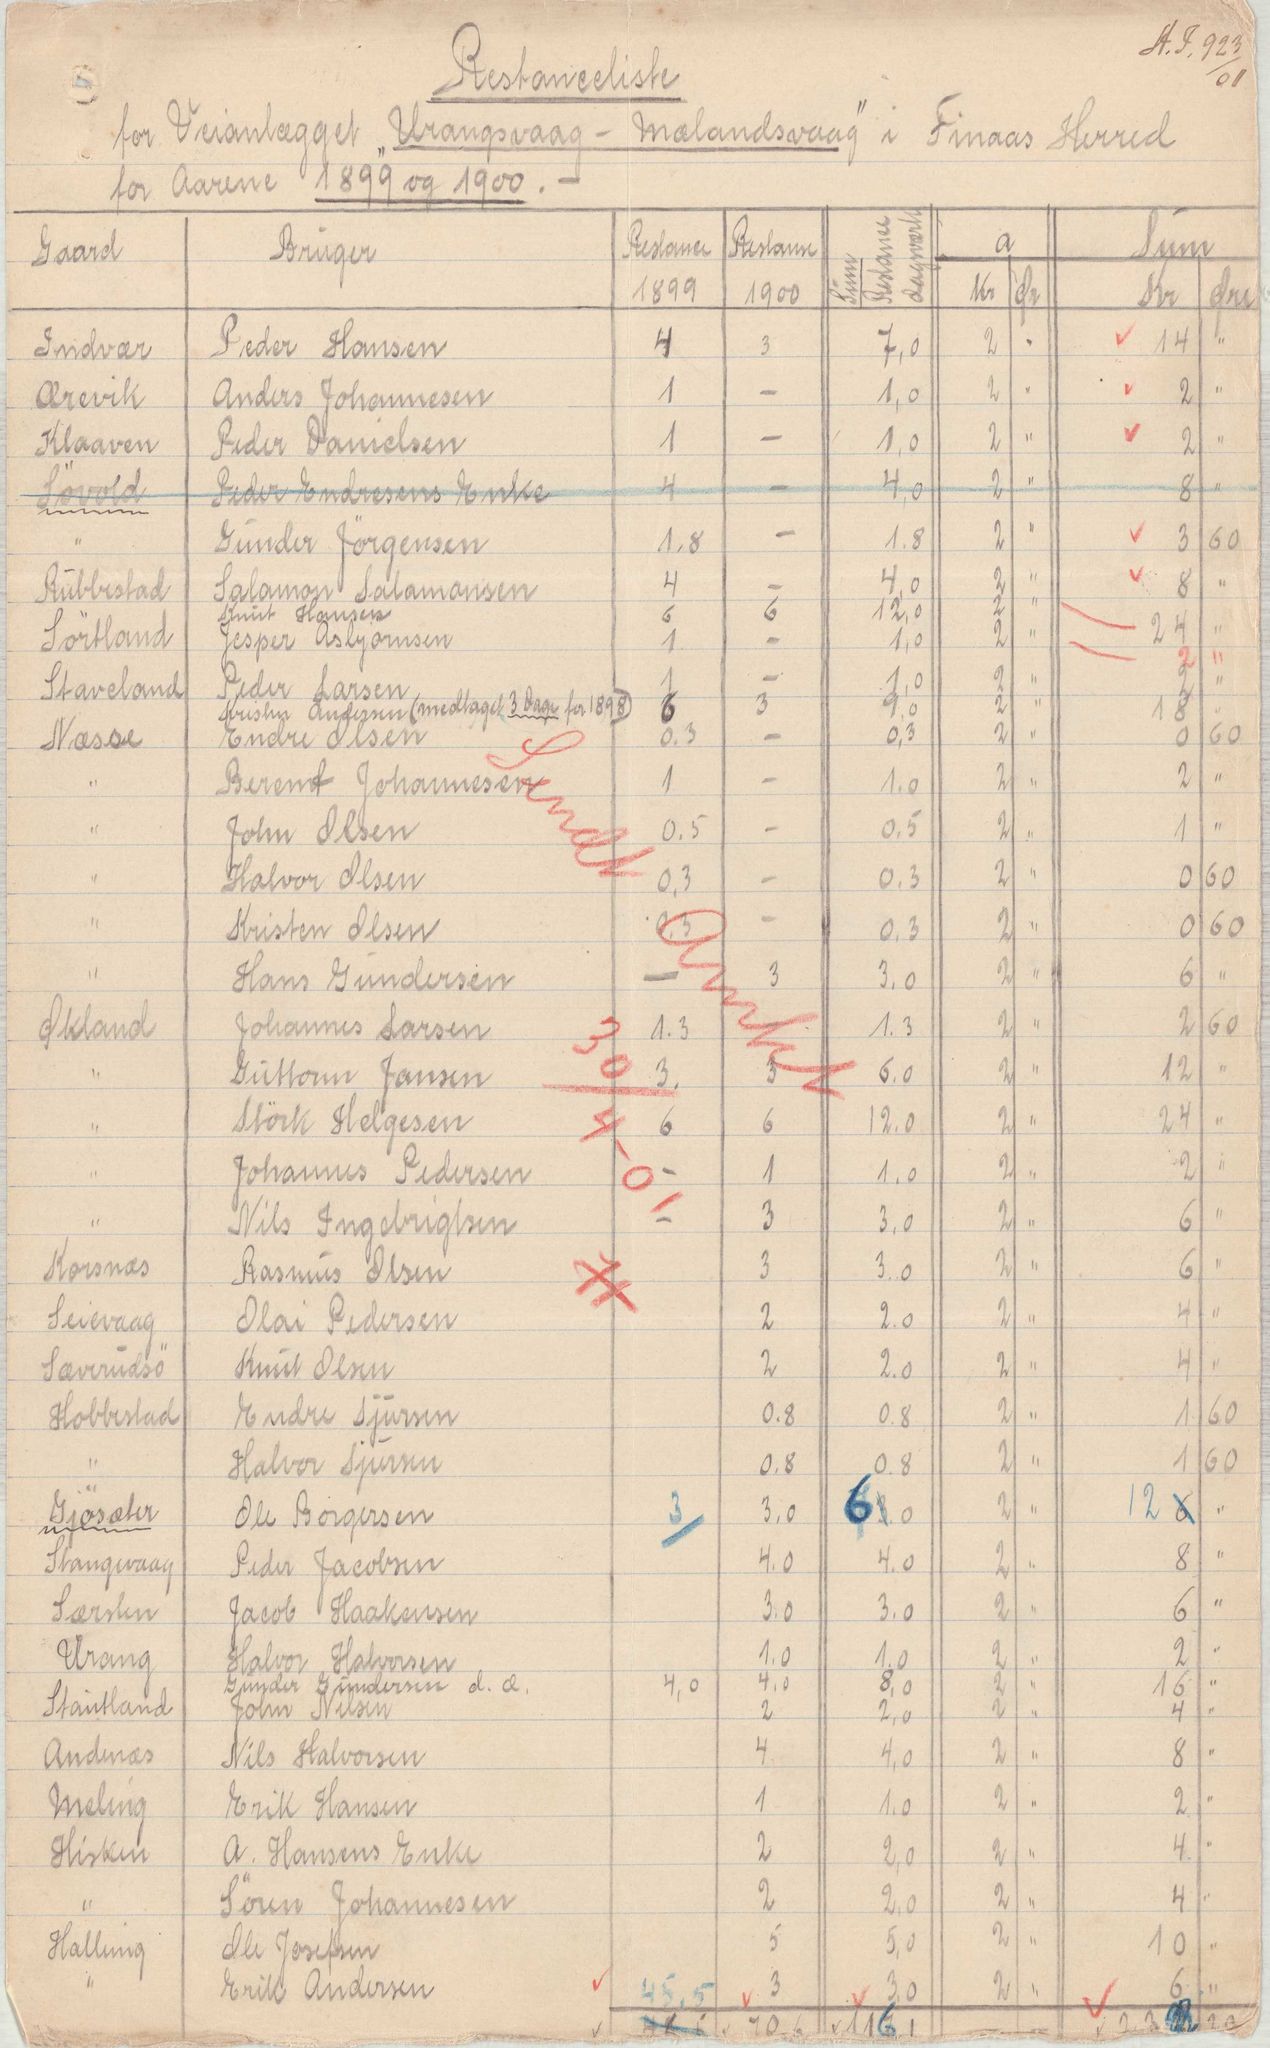 A.J. 923/01
Restanceliste
for Veianlægget "Urangsvaag - Mælandsvaag" i Finaas Herred
for Aarene 1899 og 1900. -
Gaard Bruger Restance 1899 Restance 1900 Sum Restance dagsværk a Kr Ør Sum Kr Øre
Indvær Peder Hansen 4 3 7,0 2 " 14 "
Ærevik Anders Johannesen 1 - 1,0 2 " 2 "
Klaaven Peder Danielsen 1 - 1,0 2 " 2 "
Sövold Peder Endresens Enke 4 - 4,0 2 " 8 "
" Gunder Jörgensen 1.8 - 1.8 2 " 3 60
Rubbestad Salamon Salamonsen 4 - 4,0 2 " 8 "
Knut Hansen 6 6 12,0 2 " 24 "
Sörtland Jesper Asbjörnsen 1 - 1,0 2 " 2 "
Staveland Peder Larsen 1 - 1,0 2 " 2 "
Kristen Andersen (medtaget 3 Dage for 1898) 6 3 9,0 2 " 18 "
Næsse Endre Olsen 0.3 - 0,3 2 " 0 60
" Berent Johannesen 1 - 1.0 2 " 2 "
" John Olsen 0.5 - 0.5 2 " 1 "
" Halvor Olsen 0,3 - 0.3 2 " 0 60
" Kristen Olsen 0,3 - 0,3 2 " 0 60
" Hans Gundersen - 3 3.0 2 " 6 "
Økland Johannes Larsen 1.3 1.3 2 " 2 60
" Guttorm Jansen 3. 3 6.0 2 " 12 "
" Störk Helgesen 6 6 12.0 2 " 24 "
" Johannes Pedersen - 1 1.0 2 " 2 "
" Nils Ingebrigtsen - 3 3,0 2 " 6 "
Korsnæs Rasmus Olsen 3 3.0 2 " 6 "
Seievaag Olai Pedersen 2 2.0 2 " 4 "
Sæverudsö Knut Olsen 2 2.0 2 " 4 "
Hobbestad Endre Sjursen 0.8 0.8 2 " 1 60
" Halvor Sjursen 0,8 0.8 2 " 1 60
Gjösæter Ole Borgersen 3 3,0 6 0 2 " 12 6 "
Stangevaag Peder Jacobsen 4.0 4.0 2 " 8 "
Særsten Jacob Haakensen 3.0 3.0 2 " 6 "
Urang Halvor Halvorsen 1.0 1.0 2 " 2 "
Gunder Gundersen d.æ. 4,0 4,0 8,0 2 " 16 "
Stautland John Nilsen 2 2,0 2 " 4 "
Andenæs Nils Halvorsen 4 4,0 2 " 8 "
Meling Erik Hansen 1 1.0 2 " 2 "
Hisken A. Hansens Enke 2 2,0 2 " 4 "
" Sören Johannesen 2 2,0 2 " 4 "
Halleing Ole Josefsen 5 5,0 2 " 10 "
" Erik Andersen 3 3,0 2 " 6 "
45,5
70 6 116,1 20
Sendt Amtet
30/4-01